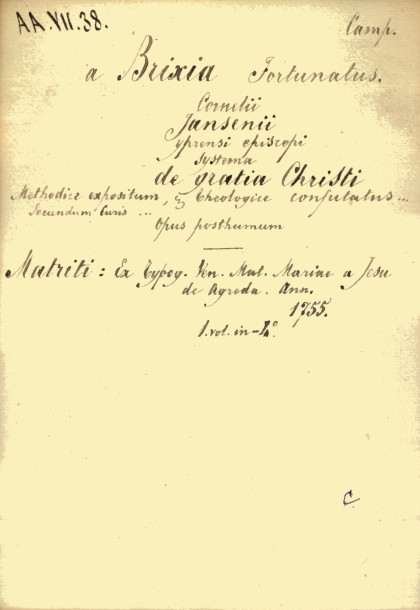 AA.VII.38.
Camp.
a Brixia Fortunatus.
Cornelii
Jansenii
yprensi episcopi
systema
de gratia Christi
Methodice expositum, & theologice confutatus...
Secundum Curis ...
Opus posthumum
Matriti: Ex Typog. Ven. Mat. Mariae a Jesu
de Agreda. Ann.
1755.
1. vol. in-4º.
C